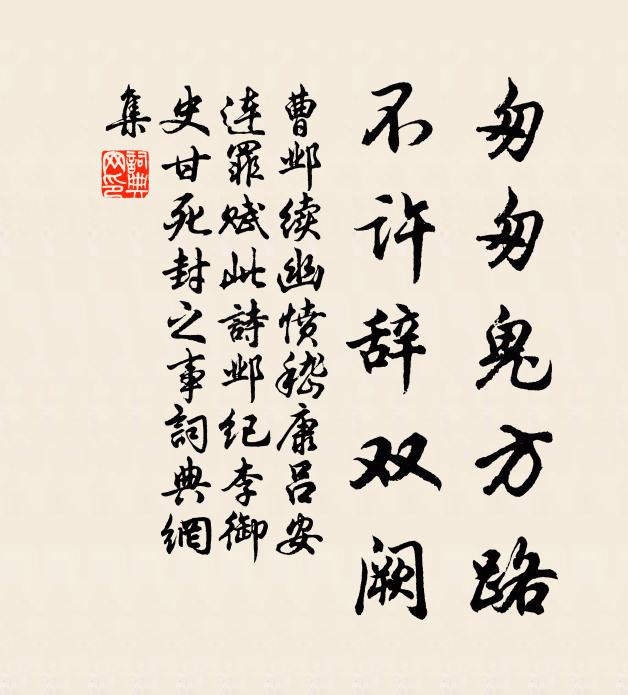 匆匆鬼方路
不许辞双阙
曹邺续幽愤嵇康吕安
连罪赋此詩邺纪李御
史甘死封之事詞典網
集
詞典
网印